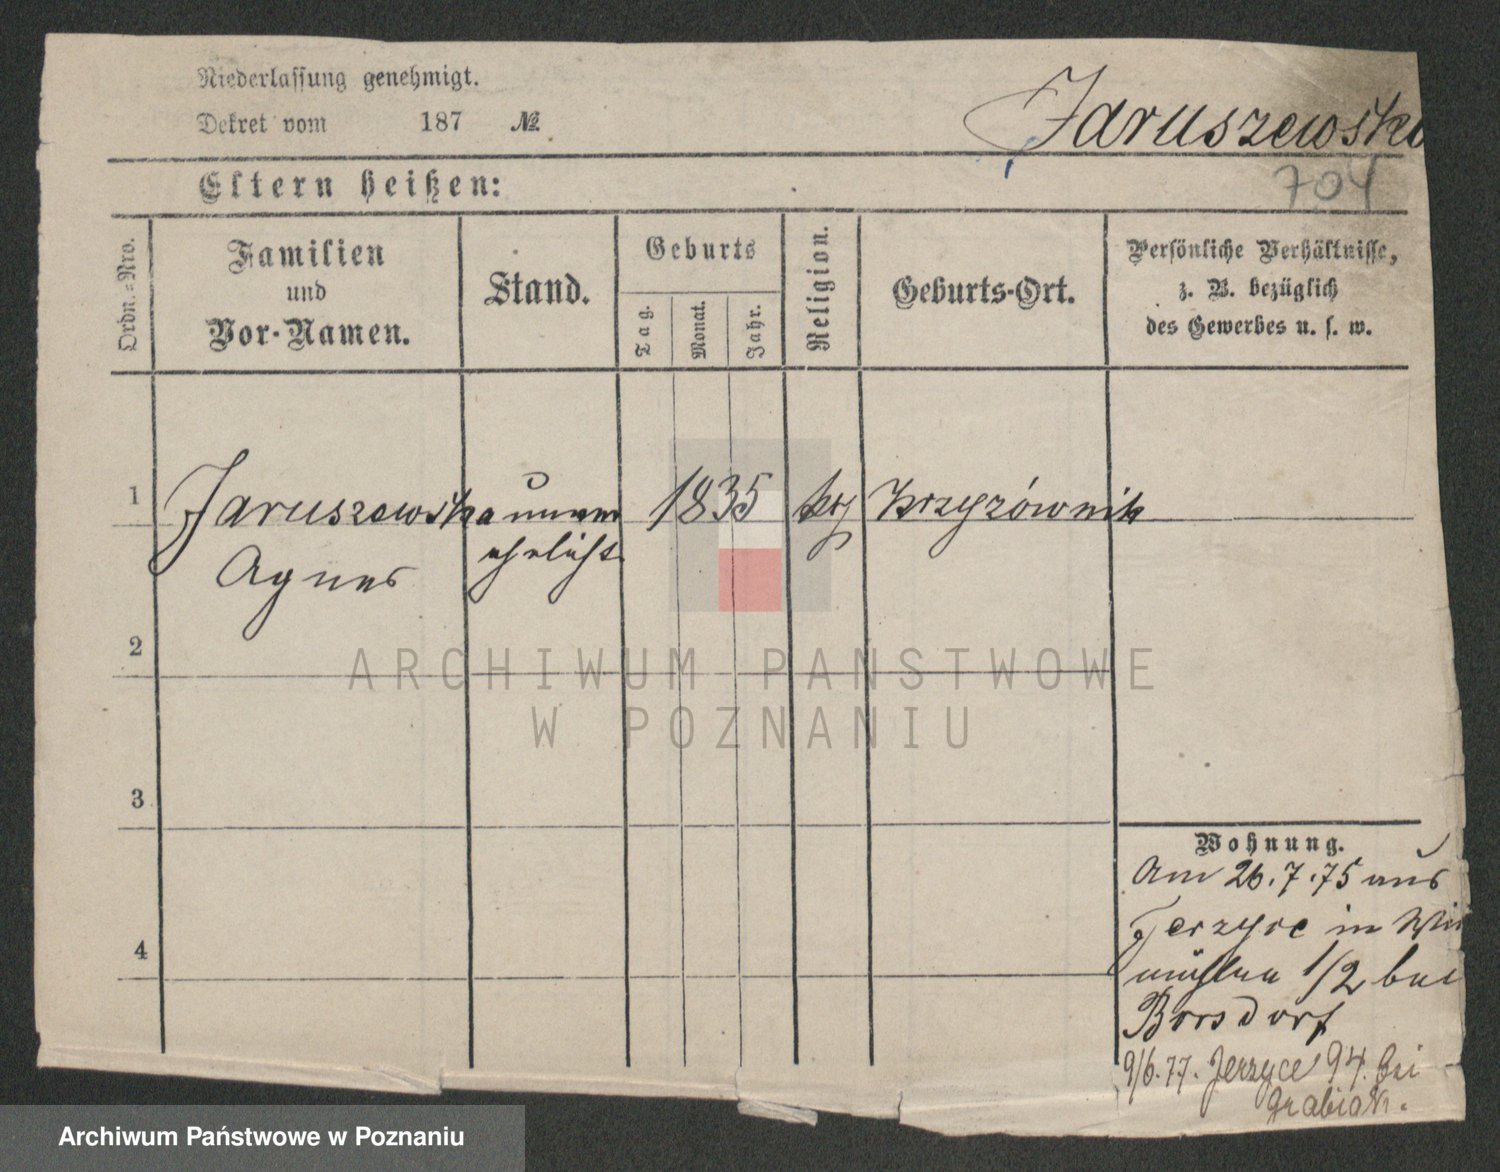 Niederlassung genehmigt.
Dekret vom 187 №
Jaruszewska
704
Eltern heißen:
Ordn.-Nro.
Familien
und
Vor-Namen.
Stand.
Geburts
Tag.
Monat.
Jahr.
Religion.
Geburts-Ort.
Persönliche Verhältnisse,
z. B. bezüglich
des Gewerbes u. s. w.
1 Jaruszewska unver 1835 Krzyżównik
ehelicht
Agnes
2
ARCHIWUM PAŃSTWOWE
W POZNANIU
3
4
Wohnung.
Am 26.7.75 aus
Jerzyce in
mühlen 1/2 bei
Borsdorf
9/6.77. Jerzyce 94. bei
Grabiak.
Archiwum Państwowe w Poznaniu